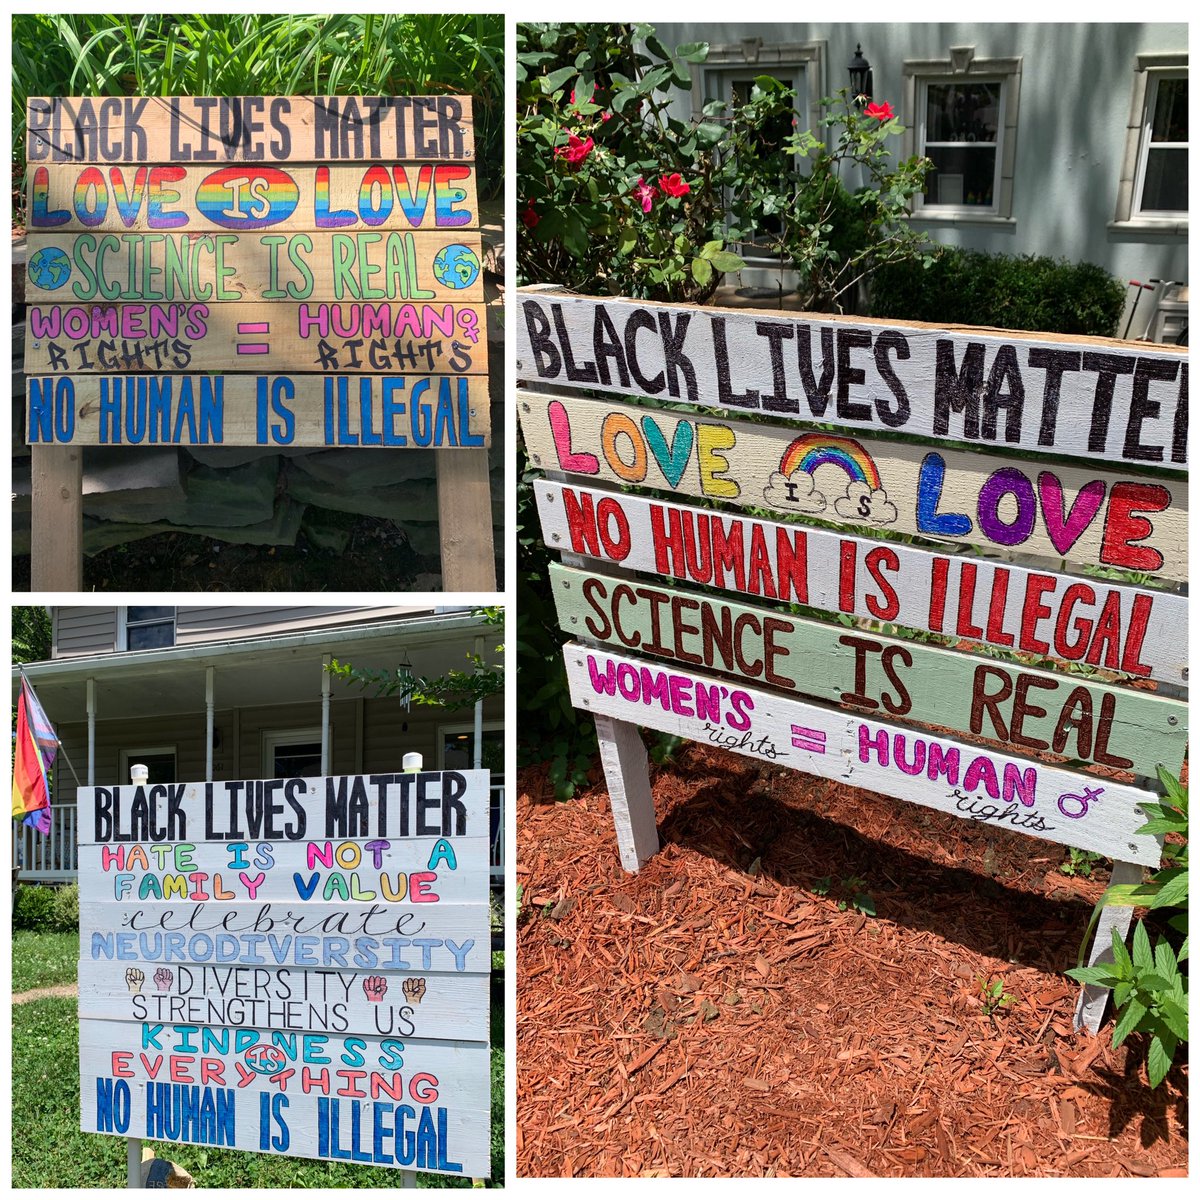 BLACK LIVES MATTER
LOVE IS LOVE
SCIENCE IS REAL
WOMEN'S = HUMAN
RIGHTS RIGHTS
NO HUMAN IS ILLEGAL
BLACK LIVES MATTER
HATE IS NOT A
FAMILY VALUE
celebrate
NEURODIVERSITY
DIVERSITY
STRENGTHENS US
KINDNESS
IS
EVERYTHING
NO HUMAN IS ILLEGAL
BLACK LIVES MATTER
LOVE IS LOVE
NO HUMAN IS ILLEGAL
SCIENCE IS REAL
WOMEN'S = HUMAN
rights rights